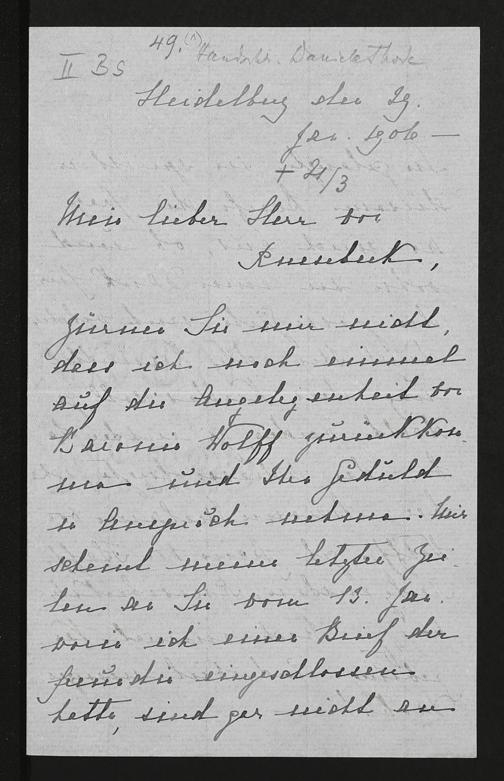 49.
II BS Handschr. Daniela Thode
Heidelberg den 29.
Jan. 1906 —
+ 21/3
Mein lieber Herr von
Knesebeck,
Zürnen Sie mir nicht,
dass ich noch einmal
auf die Angelegenheit von
Baronin Wolff zurückkom
me und Ihre Geduld
in Anspruch nehme. Mir
scheint meine letzten Zei
len an Sie vom 13. Jan.
worin ich einen Brief der
Freundin eingeschlossen
hatte, sind gar nicht an